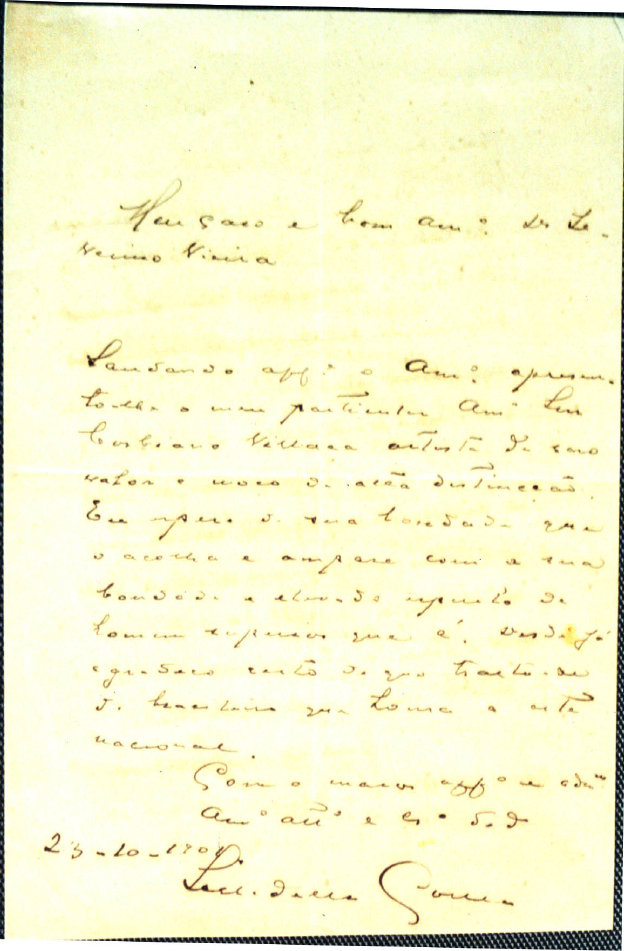 Meu Caro e bom Amº. Dr Se-
verino Vieira
Saudando affº o Amº. apresen-
to-lhe o meu particular Amº Snr
Corbiniano Villaça artista de raro
valor e moço de alta distincção.
Eu espero de sua bondade que
o acolha e ampare com a sua
bondade e elevado espirito de
homem superior que é. Desde já
agradeço certo de que tracta-se
de brasileiro que honra a arte
nacional.
Com o maior affº e
Amº attº e Crº
23-10-190